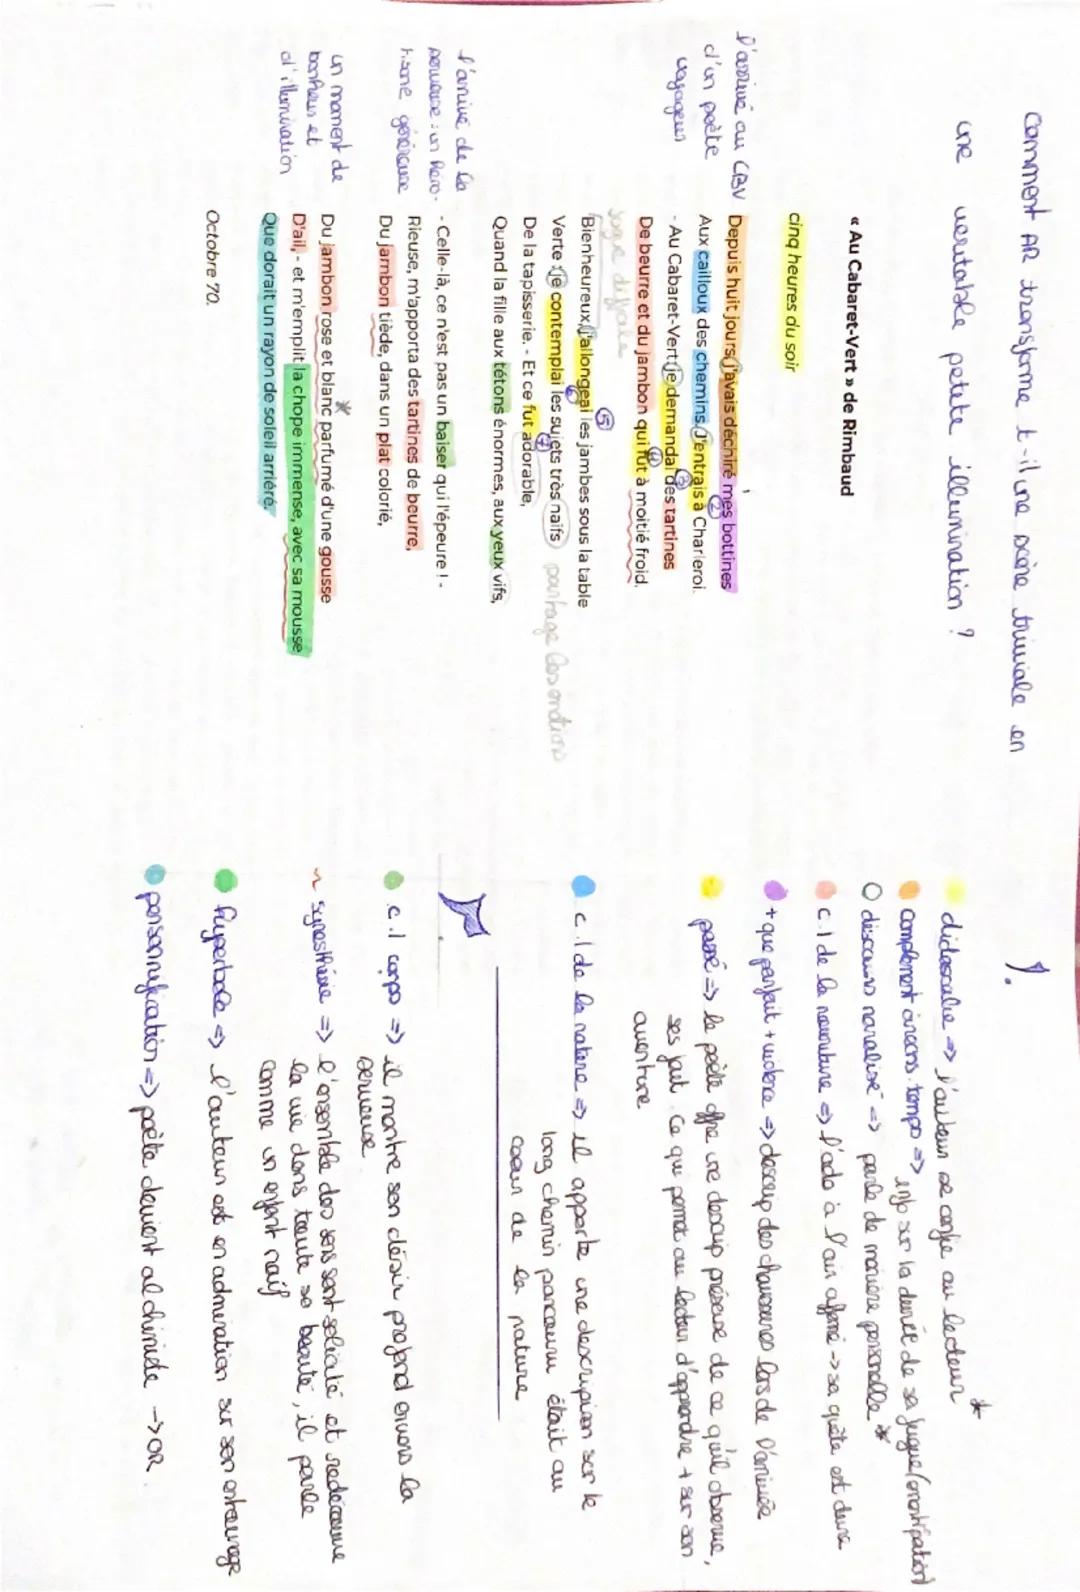 Comment AR transforme t-il une scène triviale en
une veritable petite illumination ?
« Au Cabaret-Vert » de Rimbaud
cinq heures du soir
l'arrivé au CBV
d'un poète
voyageur
Depuis huit jours, j'avais déchiré mes bottines
Aux cailloux des chemins. J'entrais à Charleroi.
- Au Cabaret-Vert : je demandai des tartines
De beurre et du jambon qui fut à moitié froid.
Bienheureux, j'allongeai les jambes sous la table
Verte : je contemplai les sujets très naïfs
De la tapisserie. - Et ce fut adorable,
Quand la fille aux tétons énormes, aux yeux vifs,
partage les émotions
2
3
4
5
6
7
l'arrivé de la
serveuse : un
généreuse
- Celle-là, ce n'est pas un baiser qui l'épeure ! -
Rieuse, m'apporta des tartines de beurre,
Du jambon tiède, dans un plat colorié,
un moment de
bonheur et
d'illumination
Du jambon rose et blanc parfumé d'une gousse
D'ail, - et m'emplit la chope immense, avec sa mousse
Que dorait un rayon de soleil arriéré.
Octobre 70.
1.
didascalie => l'auteur se confie au lecteur *
complément circons. temps => info sur la durée de sa fugue
discours naralisé => parle de manière personelle *
c.l de la nourriture => l'ado à l'air affamé -> sa quète est dure
+ que parfait + violence => descrip des chaussures lors de l'arrivée
passé => le poète offre une descrip présise de ce qu'il observe,
ses fait. Ce qui permet au lecteur d'apprendre + sur son
aventure
c.l de la nature => il apporte une description sur le
long chemin parcouru était au
coeur de la nature
c.l corps => il montre son désir profond envers la
serveuse
synesthésie => l'ensemble des sens sont solicité et redécouvre
la vie dans toute sa beauté, il parle
comme un enfant naïf
hyperbole => l'auteur est en admiration sur son entourage
personnification => poète devient alchimiste -> OR